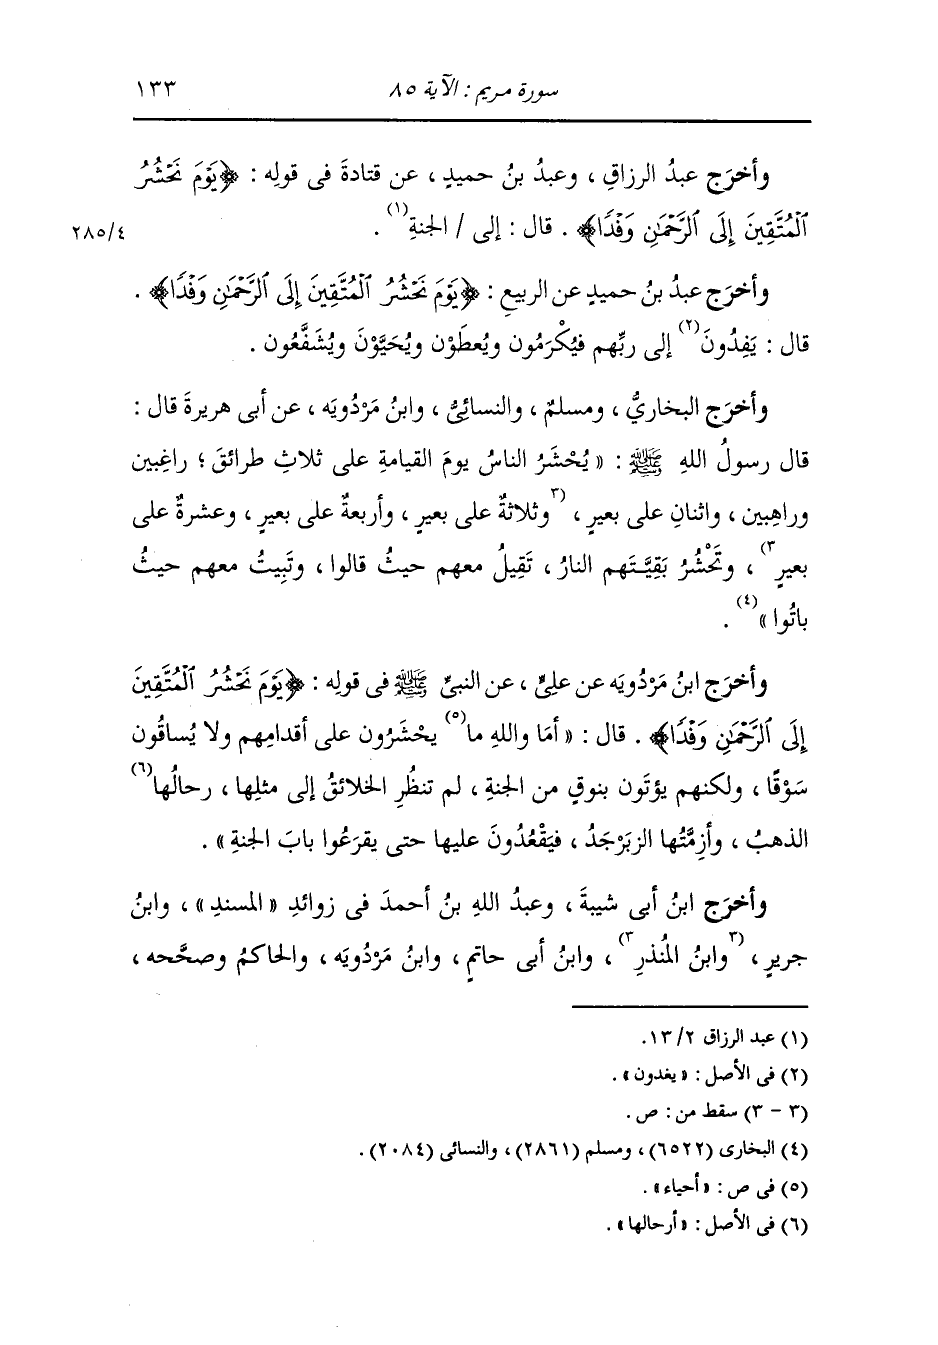 سورة مريم : الآية ٨٥ ١٣٣
وأخرَج عبدُ الرزاقِ ، وعبدُ بنُ حميدٍ ، عن قتادةَ فى قولِه : ﴿يَوْمَ نَحْشُرُ
ٱلْمُتَّقِينَ إِلَى ٱلرَّحْمَٰنِ وَفْدًا﴾ . قال : إلى / الجنةِ(١) . ٢٨٥/٤
وأخرَج عبدُ بنُ حميدٍ عن الربيعِ : ﴿يَوْمَ نَحْشُرُ ٱلْمُتَّقِينَ إِلَى ٱلرَّحْمَٰنِ وَفْدًا﴾ .
قال : يَفِدُونَ(٢) إلى ربِّهم فيُكْرَمُون ويُعطَوْن ويُحَيَّوْنَ ويُشَفَّعُون .
وأخرَج البخاريُّ ، ومسلمٌ ، والنسائيُّ ، وابنُ مَرْدُويَه ، عن أبى هريرةَ قال :
قال رسولُ اللهِ ﷺ : « يُحْشَرُ الناسُ يومَ القيامةِ على ثلاثِ طرائقَ ؛ راغِبين
وراهِبين ، واثنانِ على بعيرٍ ، (٣وثلاثةٌ على بعيرٍ ، وأربعةٌ على بعيرٍ ، وعشرةٌ على
بعيرٍ٣) ، وتَحْشُرُ بَقِيَّتَهم النارُ ، تَقِيلُ معهم حيثُ قالوا ، وتَبِيتُ معهم حيثُ
باتُوا »(٤) .
وأخرَج ابنُ مَرْدُويَه عن علىٍّ ، عن النبىِّ ﷺ فى قولِه : ﴿يَوْمَ نَحْشُرُ ٱلْمُتَّقِينَ
إِلَى ٱلرَّحْمَٰنِ وَفْدًا﴾ . قال : « أمَا واللهِ ما(٥) يحْشَرُون على أقدامِهم ولا يُساقُون
سَوْقًا ، ولكنهم يؤتَون بنوقٍ من الجنةِ ، لم تنظُرِ الخلائقُ إلى مثلِها ، رحالُها(٦)
الذهبُ ، وأزِمَّتُها الزبَرْجَدُ ، فيَقْعُدُونَ عليها حتى يقرَعُوا بابَ الجنةِ » .
وأخرَج ابنُ أبى شيبةَ ، وعبدُ اللهِ بنُ أحمدَ فى زوائدِ « المسندِ » ، وابنُ
جريرٍ ، (٣وابنُ المُنذرِ٣) ، وابنُ أبى حاتمٍ ، وابنُ مَرْدُويَه ، والحاكمُ وصحَّحه ،
(١) عبد الرزاق ١٣/٢.
(٢) فى الأصل : « يغدون » .
(٣ - ٣) سقط من : ص .
(٤) البخارى (٦٥٢٢) ، ومسلم (٢٨٦١) ، والنسائى (٢٠٨٤) .
(٥) فى ص : « أحياء » .
(٦) فى الأصل : « أرحالها » .